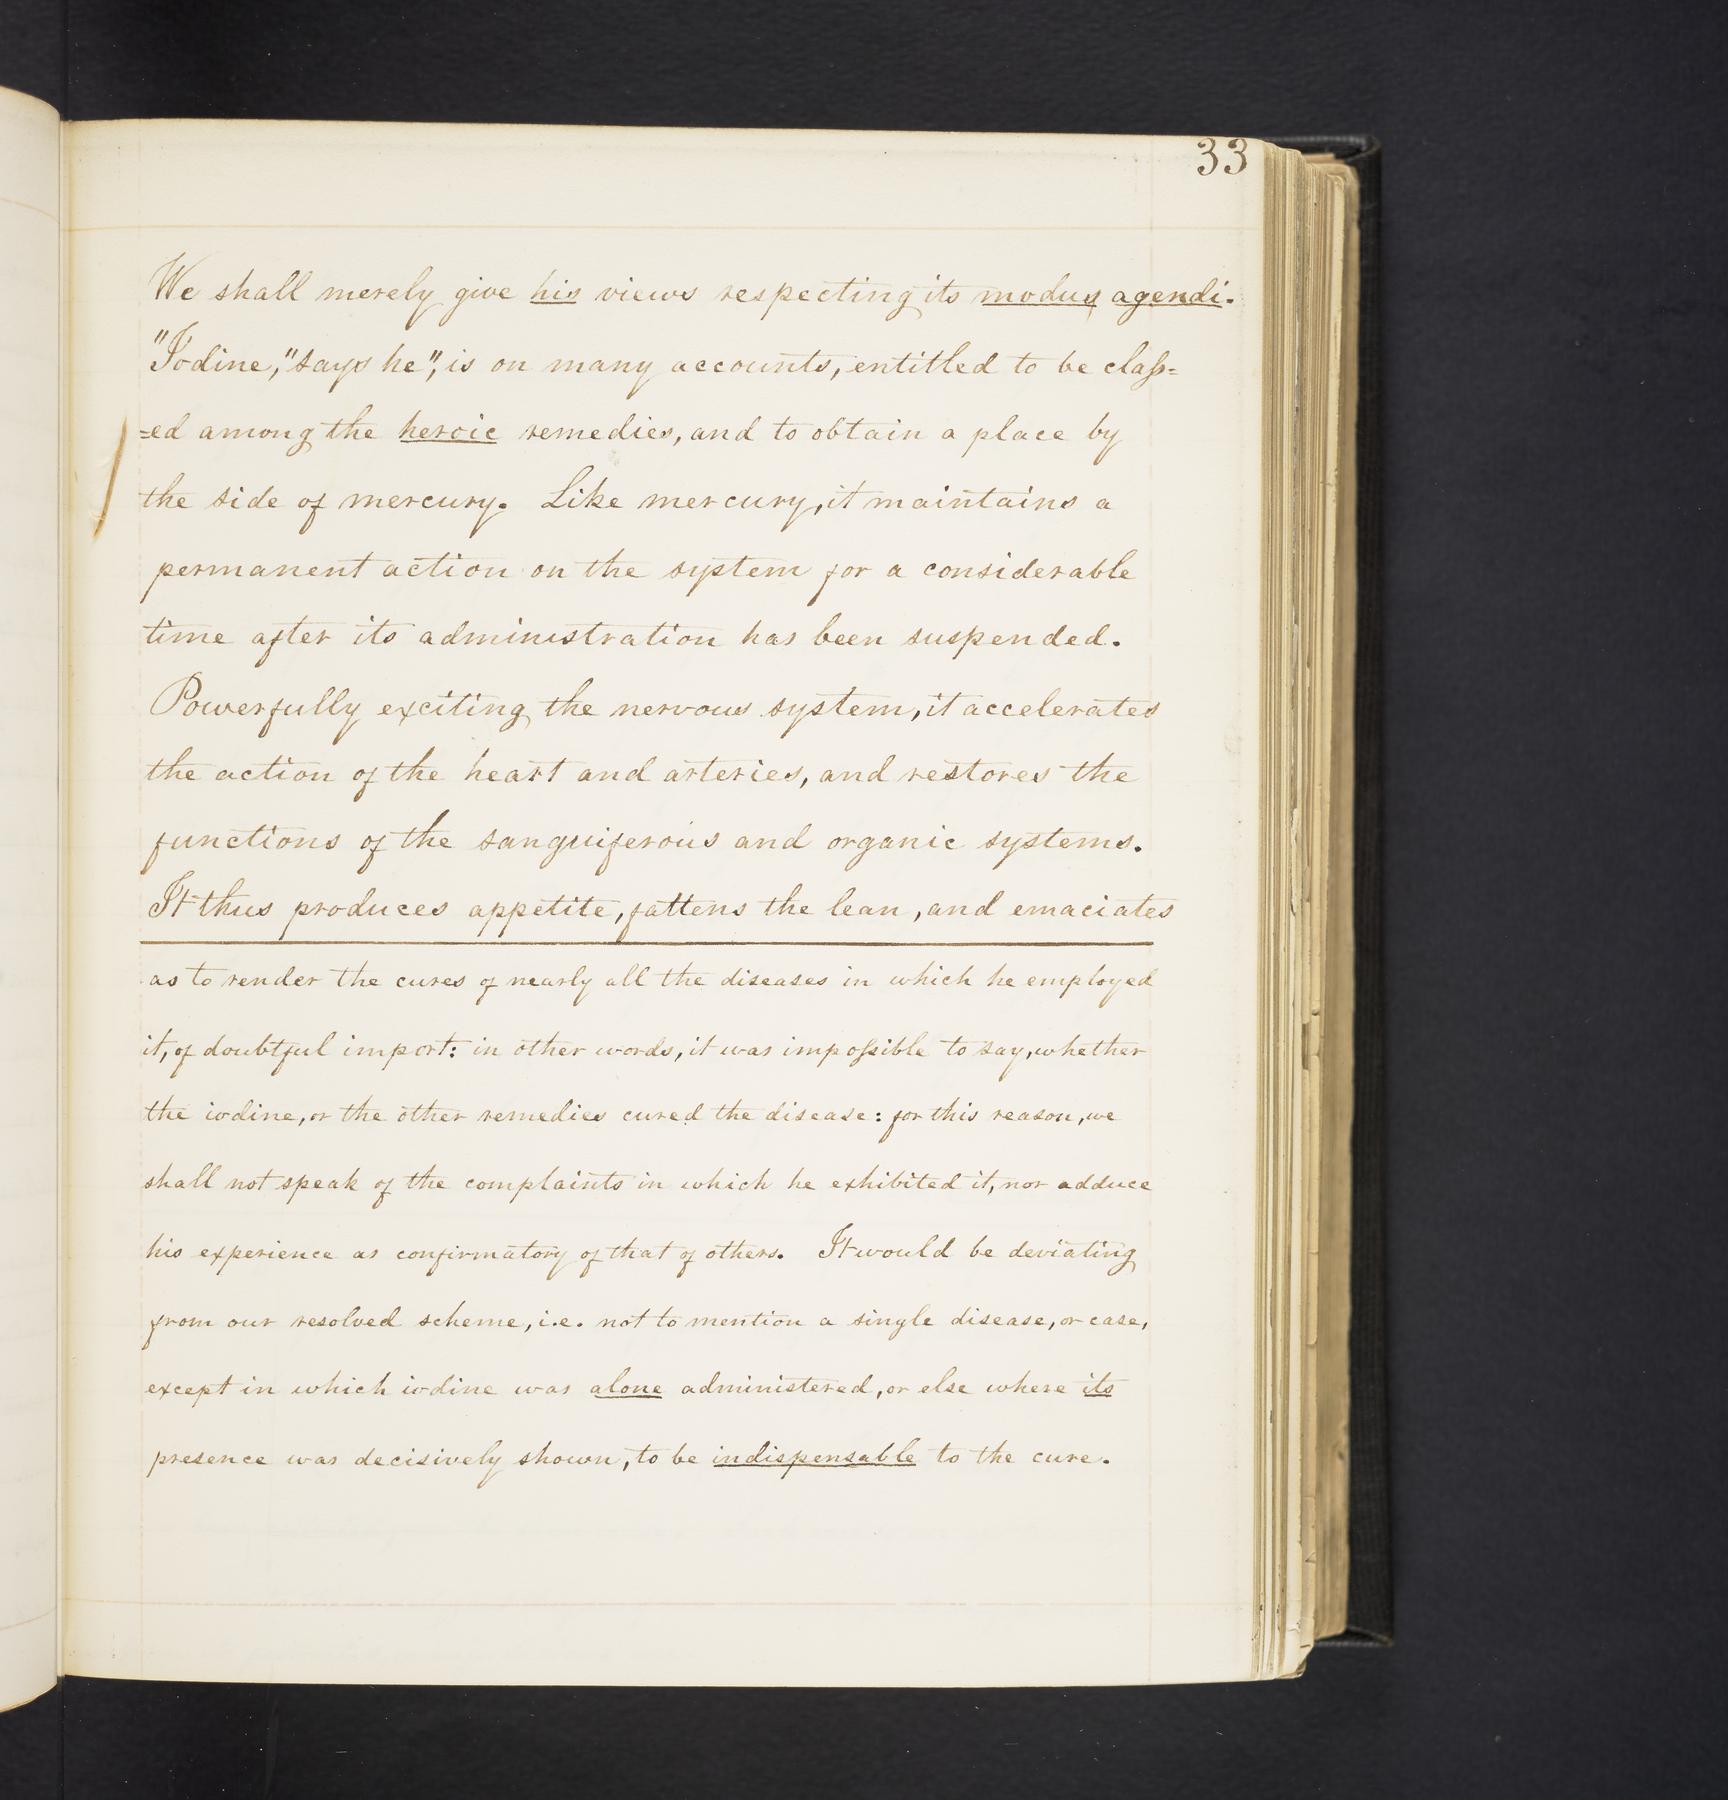 33
We shall merely give his views respecting its modus agendi.
"Iodine," says he", is on many accounts, entitled to be class=
=ed among the heroic remedies, and to obtain a place by
the side of mercury. Like mercury, it maintains a
permanent action on the system for a considerable
time after its administration has been suspended.
Powerfully exciting the nervous system, it accelerates
the action of the heart and arteries, and restores the
functions of the sanguiferous and organic systems.
It thus produces appetite, fattens the lean, and emaciates
as to render the cures of nearly all the diseases in which he employed
it, of doubtful import: in other words, it was impossible to say, whether
the iodine, or the other remedies cured the disease: for this reason, we
shall not speak of the complaints in which he exhibited it, nor adduce
his experience as confirmatory of that of others. It would be deviating
from our resolved scheme, i.e. not to mention a single disease, or case,
except in which iodine was alone administered, or else where its
presence was decisively shown, to be indispensable to the cure.